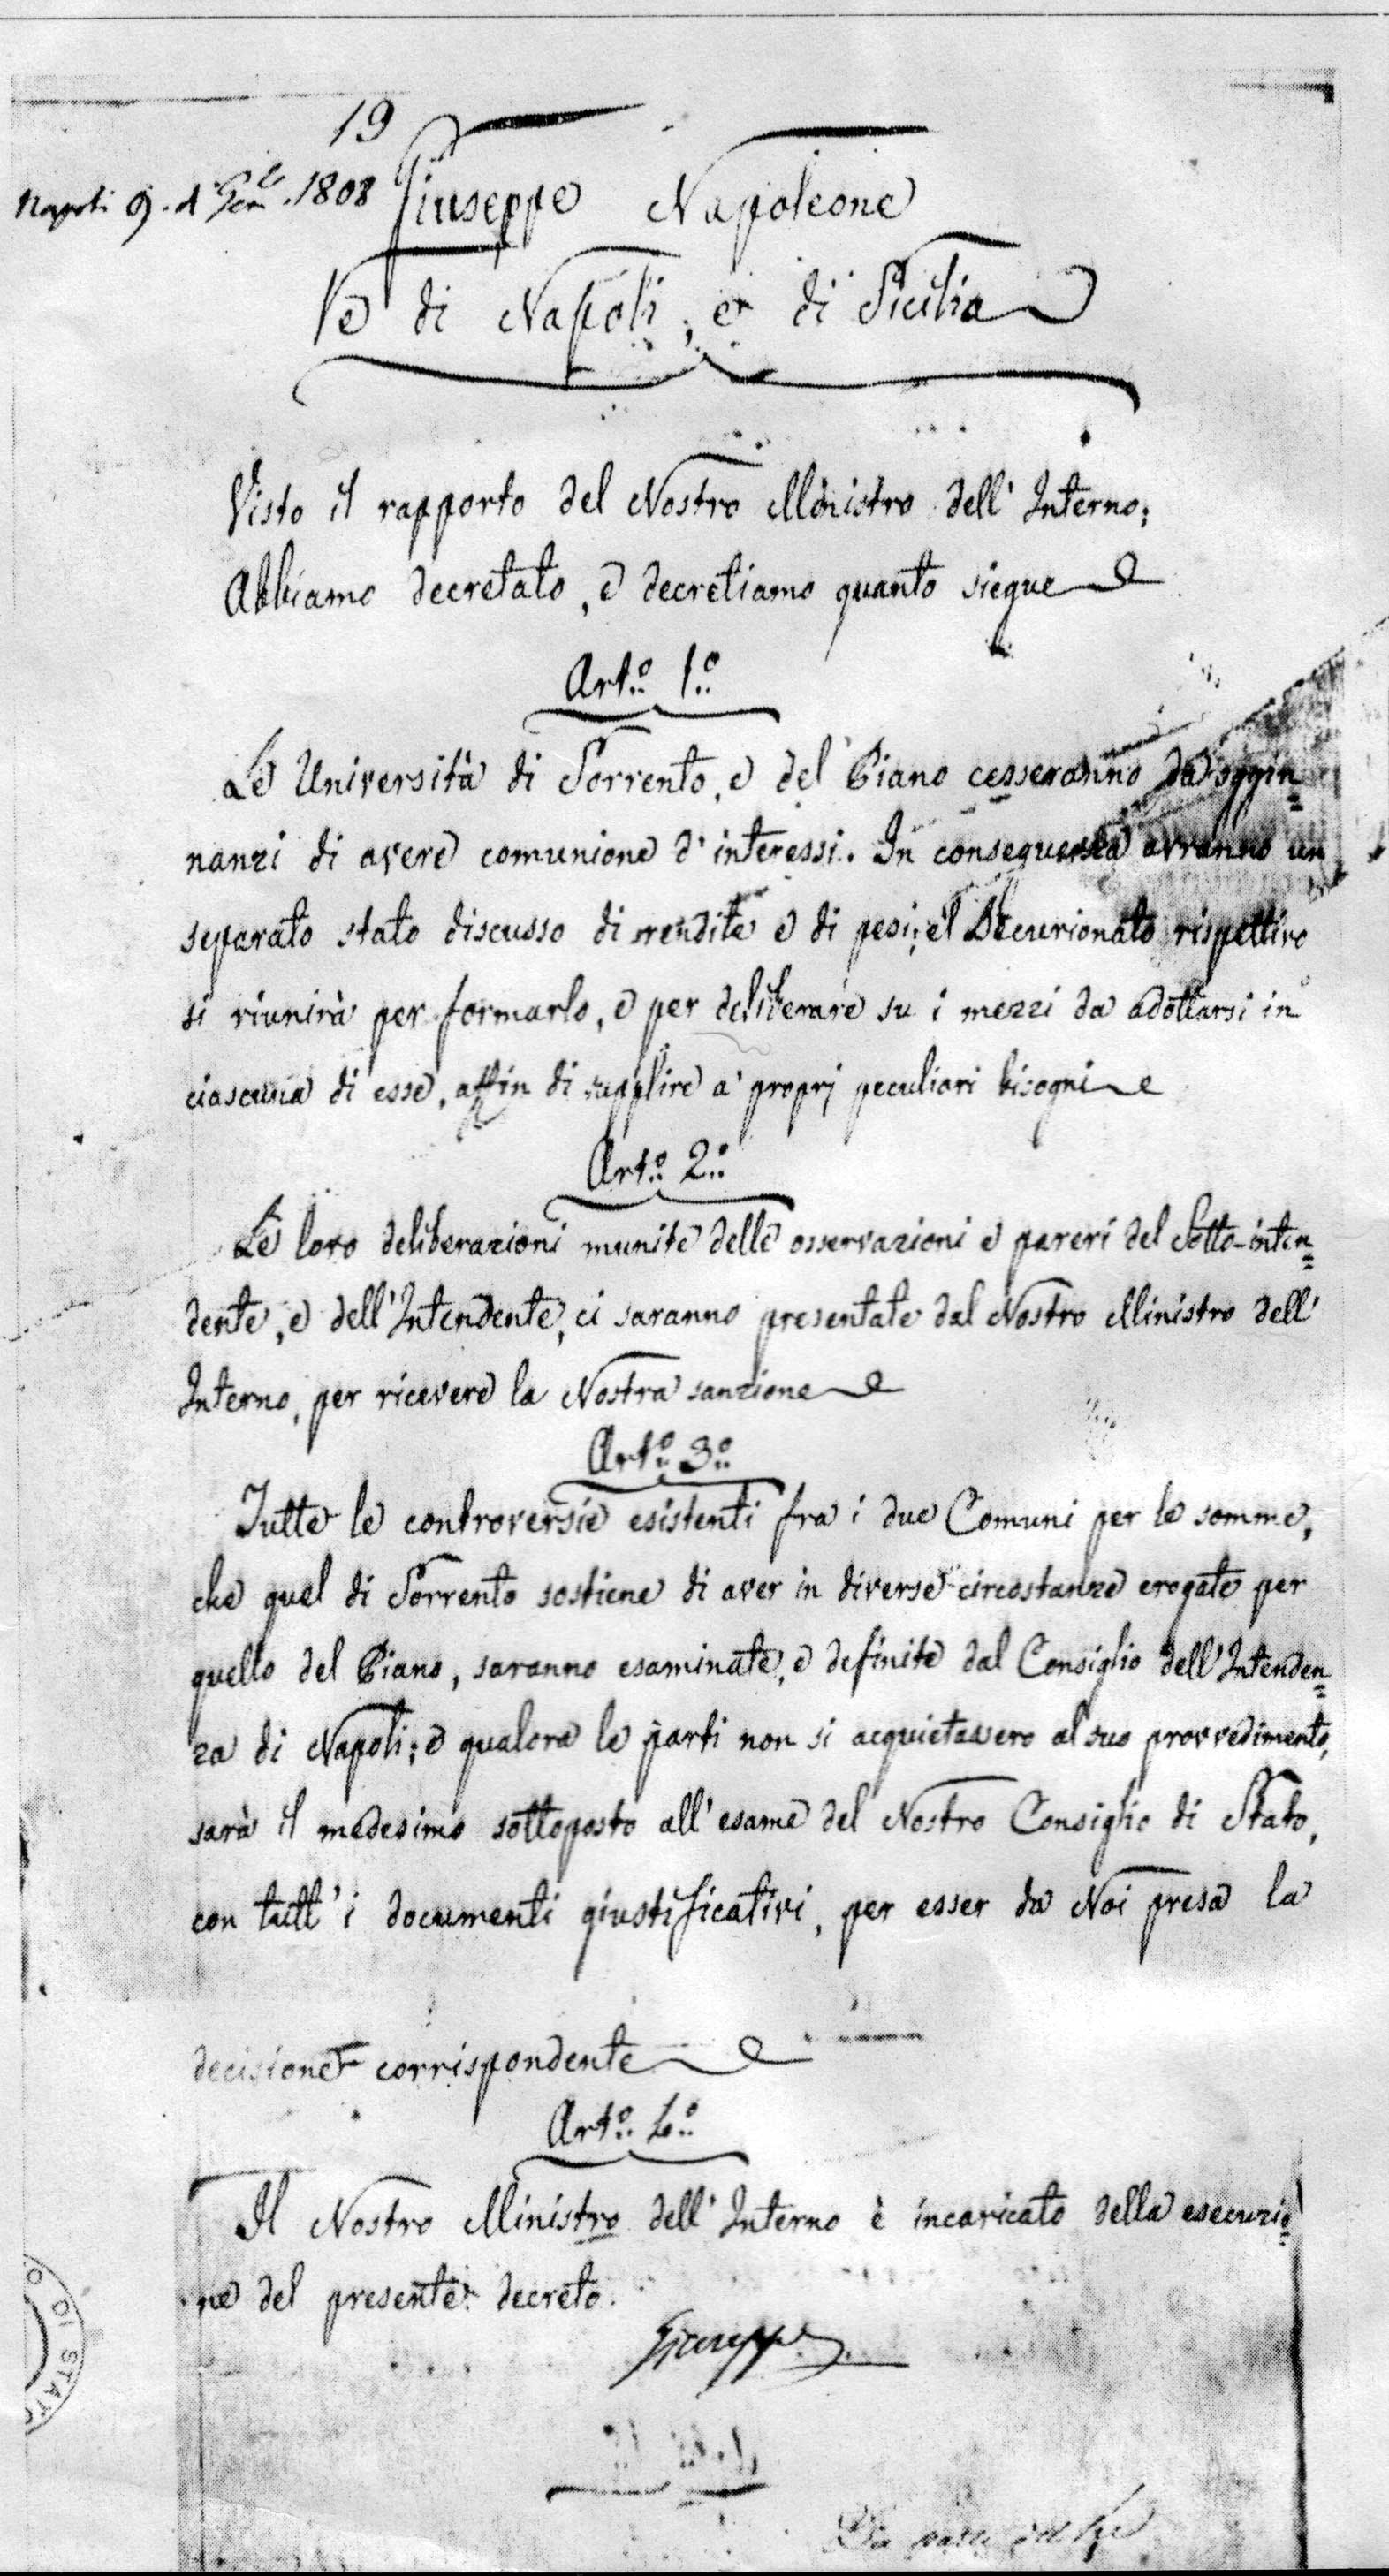 19
Napoli 9. d. Gen. 1808
Giuseppe Napoleone
Re di Napoli, e di Sicilia
Visto il rapporto del Nostro Ministro dell' Interno;
Abbiamo decretato, e decretiamo quanto siegue
Art.o 1.o
Le Università di Sorrento, e del Piano cesseranno da oggin=
nanzi di avere comunione d'interessi. In conseguenza avranno un
separato stato discusso di rendite e di pesi; e'l Decurionato rispettivo
si riunirà per formarlo, e per deliberare su i mezzi da adottarsi in
ciascuna di esse, affin di supplire a' proprj peculiari bisogni
Art.o 2.o
Le loro deliberazioni munite delle osservazioni e pareri del Sotto-inten=
dente, e dell'Intendente, ci saranno presentate dal Nostro Ministro dell'
Interno, per ricevere la Nostra sanzione
Art.o 3.o
Tutte le controversie esistenti fra i due Comuni per le somme,
che quel di Sorrento sostiene di aver in diverse circostanze erogate per
quello del Piano, saranno esaminate, e definite dal Consiglio dell'Intenden=
za di Napoli; e qualora le parti non si acquietassero al suo provvedimento,
sarà il medesimo sottoposto all'esame del Nostro Consiglio di Stato,
con tutt'i documenti giustificativi, per esser da Noi presa la
decisione corrispondente
Art.o 4.o
Il Nostro Ministro dell'Interno è incaricato della esecuzio=
ne del presente decreto.
Giuseppe
O DI STATO